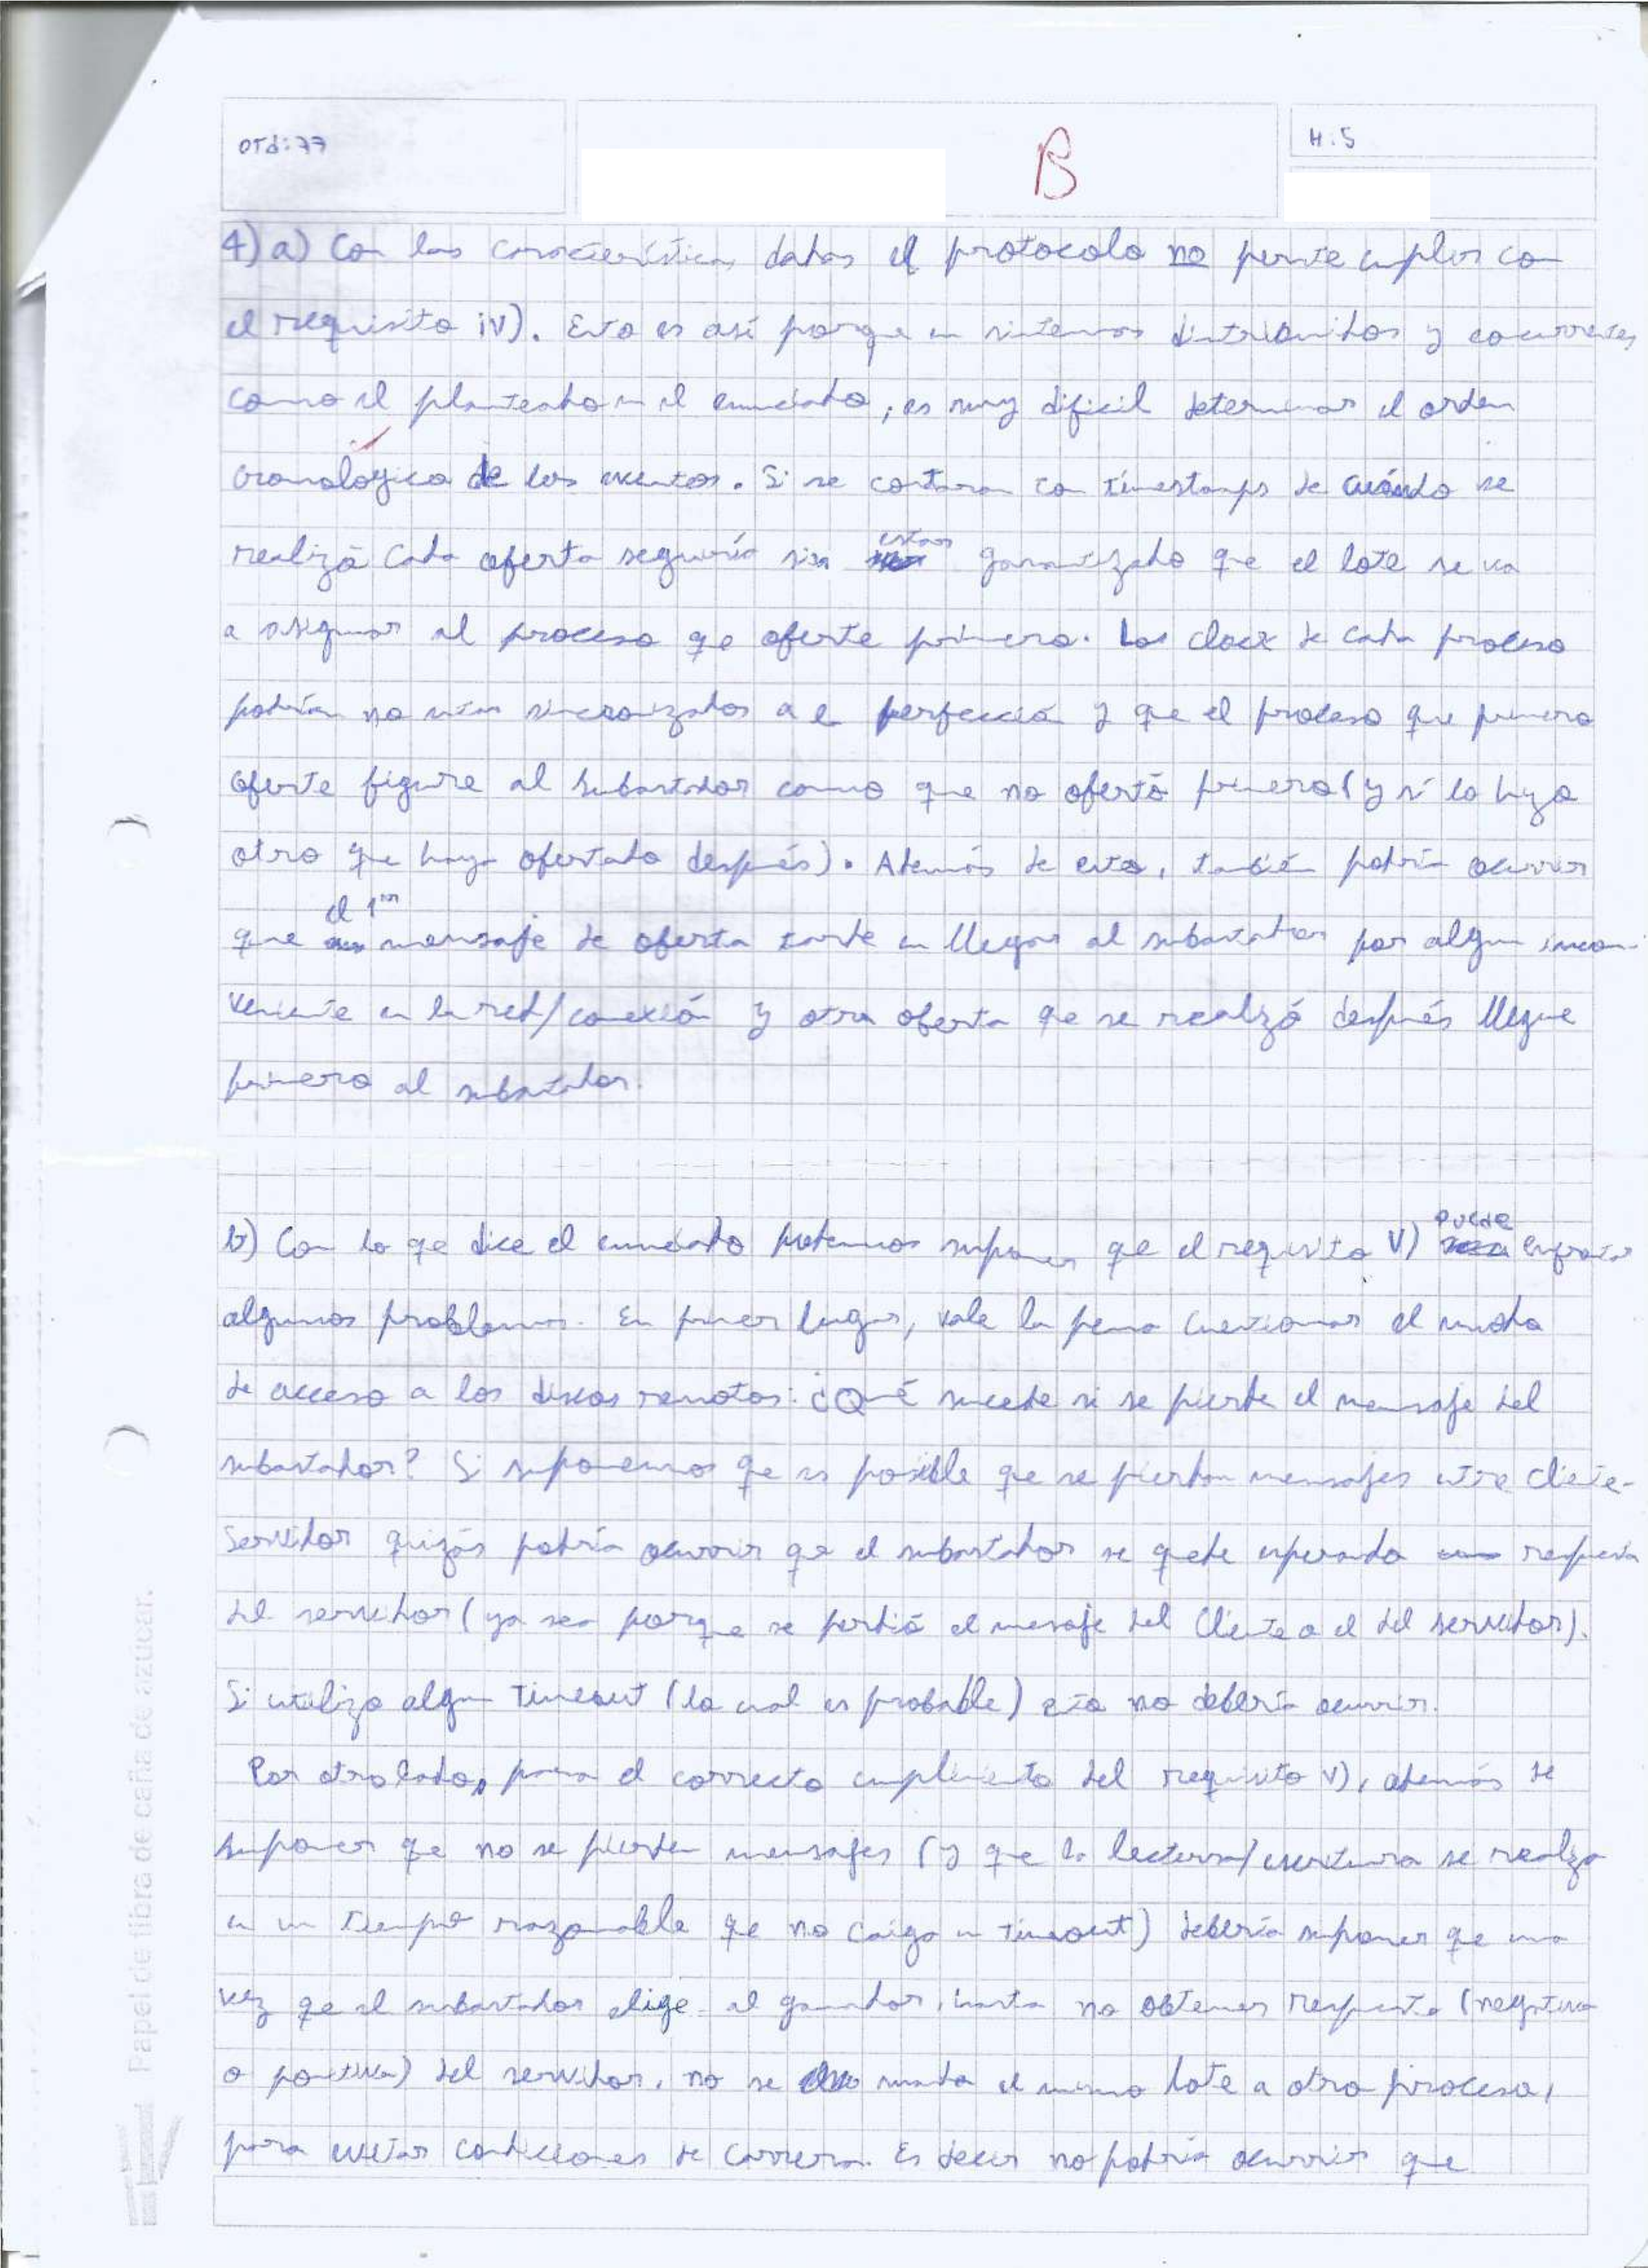 Ord: 77
B
H: 5
4) a) Con las características dadas el protocolo no permite cumplir con
el requisito iv). Esto es así porque en sistemas distribuidos y concurrentes,
como el planteado en el enunciado, es muy difícil determinar el orden
cronológico de los eventos. Si se contaran con timestamps de cuándo se
realizó cada oferta seguiría sin estar garantizado que el lote se va
a asignar al proceso que oferte primero. Los clock de cada proceso
podrían no estar sincronizados a la perfección y que el proceso que primero
oferte figure al subastador como que no ofertó primero (y sí lo hizo
otro que haya ofertado después). Además de esto, también podría ocurrir
que el 1er mensaje de oferta tarde en llegar al subastador por algún incon-
veniente en la red/conexión y otra oferta que se realizó después llegue
primero al subastador.
b) Con lo que dice el enunciado podemos suponer que el requisito V) puede enfrentar
algunos problemas. En primer lugar, vale la pena cuestionar el modo
de acceso a los discos remotos: ¿Qué sucede si se pierde el mensaje del
subastador? Si suponemos que es posible que se pierdan mensajes entre cliente-
servidor quizás podría ocurrir que el subastador se quede esperando respuesta
del servidor (ya sea porque se perdió el mensaje del cliente o el del servidor).
Si utiliza algún timeout (lo cual es probable) esto no debería ocurrir.
Por otro lado, para el correcto cumplimiento del requisito V), además de
suponer que no se pierden mensajes (y que la lectura/escritura se realiza
en un tiempo razonable que no caiga en timeout) debería suponer que una
vez que el subastador elige al ganador, hasta no obtener respuesta (negativa
o positiva) del servidor, no se manda el mismo lote a otro proceso,
para evitar condiciones de carrera. Es decir no podría ocurrir que
Papel de fibra de caña de azúcar.